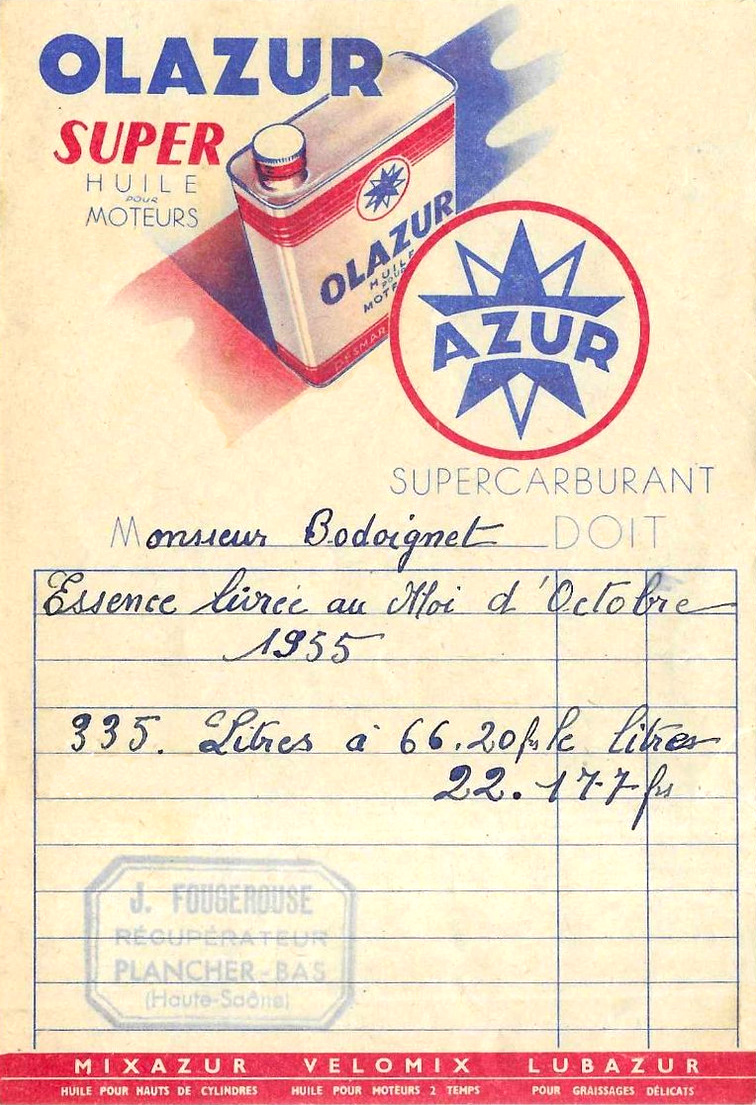 OLAZUR
SUPER
HUILE
POUR
MOTEURS
OLAZUR
HUILE
POUR
DESMAR
AZUR
SUPERCARBURANT
Monsieur Bodoignet DOIT
Essence livrée au Moi d'Octobre
1955
335. Litres à 66.20 frs le litres
22.177 frs
J. FOUGEROUSE
RÉCUPÉRATEUR
PLANCHER-BAS
(Haute-Saône)
MIXAZUR VELOMIX LUBAZUR
HUILE POUR HAUTS DE CYLINDRES HUILE POUR MOTEURS 2 TEMPS POUR GRAISSAGES DÉLICATS